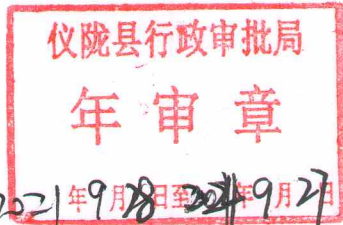 仪陇县行政审批局
年审章
2021年9月28日至年9月27日